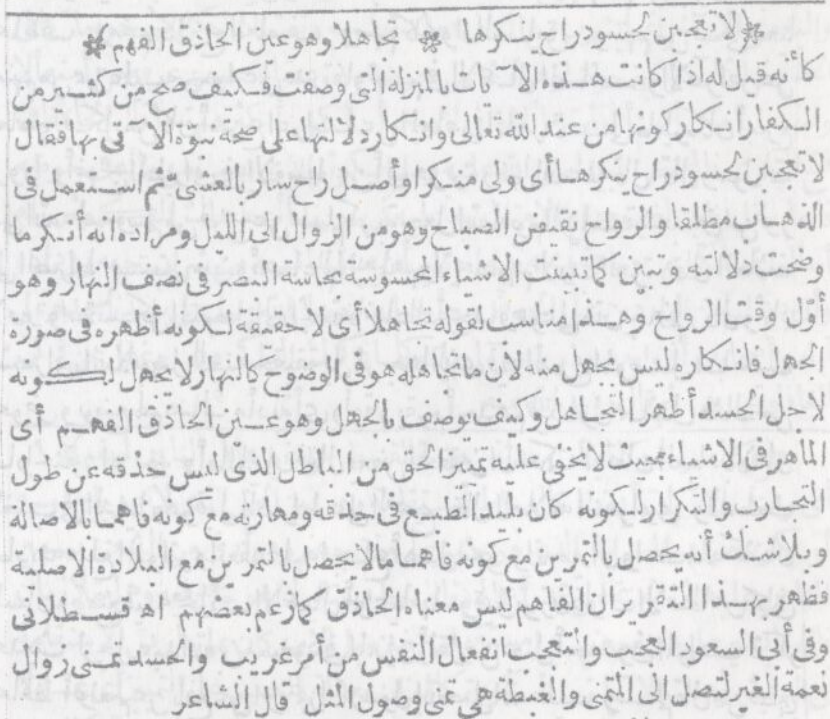 * لا تعجبن لحسود راح ينكرها * تجاهلا وهو عين الحاذق الفهم *
كأنه قيل له اذا كانت هذه الآيات بالمنزلة التى وصفت فكيف صح من كثير من
الكفار انكار كونها من عند الله تعالى وانكار دلالتها على صحة نبوّة الآتى بها فقال
لا تعجبن لحسود راح ينكرها أى ولى منكرا وأصل راح سار بالعشى ثم استعمل فى
الذهاب مطلقا والرواح نقيض الصباح وهو من الزوال الى الليل ومراده انه أنكر ما
وضحت دلالته وتبين كما تبينت الاشياء المحسوسة بحاسة البصر فى نصف النهار وهو
أوّل وقت الرواح وهذا مناسب لقوله تجاهلا أى لا حقيقة لكونه أظهره فى صورة
الجهل فانكاره ليس بجهل منه لان ما تجاهله هو فى الوضوح كالنهار لا يجهل لكونه
لاجل الحسد أظهر التجاهل وكيف يوصف بالجهل وهو عين الحاذق الفهم أى
الماهر فى الاشياء بحيث لا يخفى عليه تميز الحق من الباطل الذى ليس حذقه عن طول
التجارب والتكرار لكونه كان بليد الطبع فى حذقه ومهارته مع كونه فاهما بالاصالة
وبلا شك أنه يحصل بالتمرين مع كونه فاهما ما لا يحصل بالتمرين مع البلادة الاصلية
فظهر بهذا التقرير ان الفاهم ليس معناه الحاذق كما زعم بعضهم اه قسطلانى
وفى أبى السعود العجب والتعجب انفعال النفس من أمر غريب والحسد تمنى زوال
نعمة الغير لتصل الى المتمنى والغبطة هى تمنى وصول المثل قال الشاعر